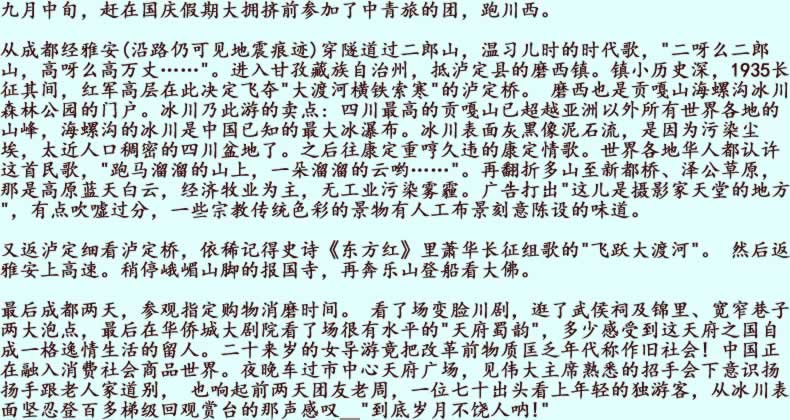 九月中旬，赶在国庆假期大拥挤前参加了中青旅的团，跑川西。
从成都经雅安(沿路仍可见地震痕迹)穿隧道过二郎山，温习儿时的时代歌，"二呀么二郎
山，高呀么高万丈……"。进入甘孜藏族自治州，抵泸定县的磨西镇。镇小历史深，1935长
征其间，红军高层在此决定飞夺"大渡河横铁索寒"的泸定桥。 磨西也是贡嘎山海螺沟冰川
森林公园的门户。冰川乃此游的卖点：四川最高的贡嘎山已超越亚洲以外所有世界各地的
山峰，海螺沟的冰川是中国已知的最大冰瀑布。冰川表面灰黑像泥石流，是因为污染尘
埃，太近人口稠密的四川盆地了。之后往康定重哼久违的康定情歌。世界各地华人都认许
这首民歌，"跑马溜溜的山上，一朵溜溜的云哟……"。再翻折多山至新都桥、泽公草原，
那是高原蓝天白云，经济牧业为主，无工业污染雾霾。广告打出"这儿是摄影家天堂的地方
"，有点吹嘘过分，一些宗教传统色彩的景物有人工布景刻意陈设的味道。
又返泸定细看泸定桥，依稀记得史诗《东方红》里萧华长征组歌的"飞跃大渡河"。 然后返
雅安上高速。稍停峨嵋山脚的报国寺，再奔乐山登船看大佛。
最后成都两天，参观指定购物消磨时间。 看了场变脸川剧，逛了武侯祠及锦里、宽窄巷子
两大泡点，最后在华侨城大剧院看了场很有水平的"天府蜀韵"，多少感受到这天府之国自
成一格逸情生活的留人。二十来岁的女导游竟把改革前物质匮乏年代称作旧社会！中国正
在融入消费社会商品世界。夜晚车过市中心天府广场，见伟大主席熟悉的招手会下意识扬
扬手跟老人家道别， 也响起前两天团友老周，一位七十出头看上年轻的独游客，从冰川表
面坚忍登百多梯级回观赏台的那声感叹__"到底岁月不饶人呐!"